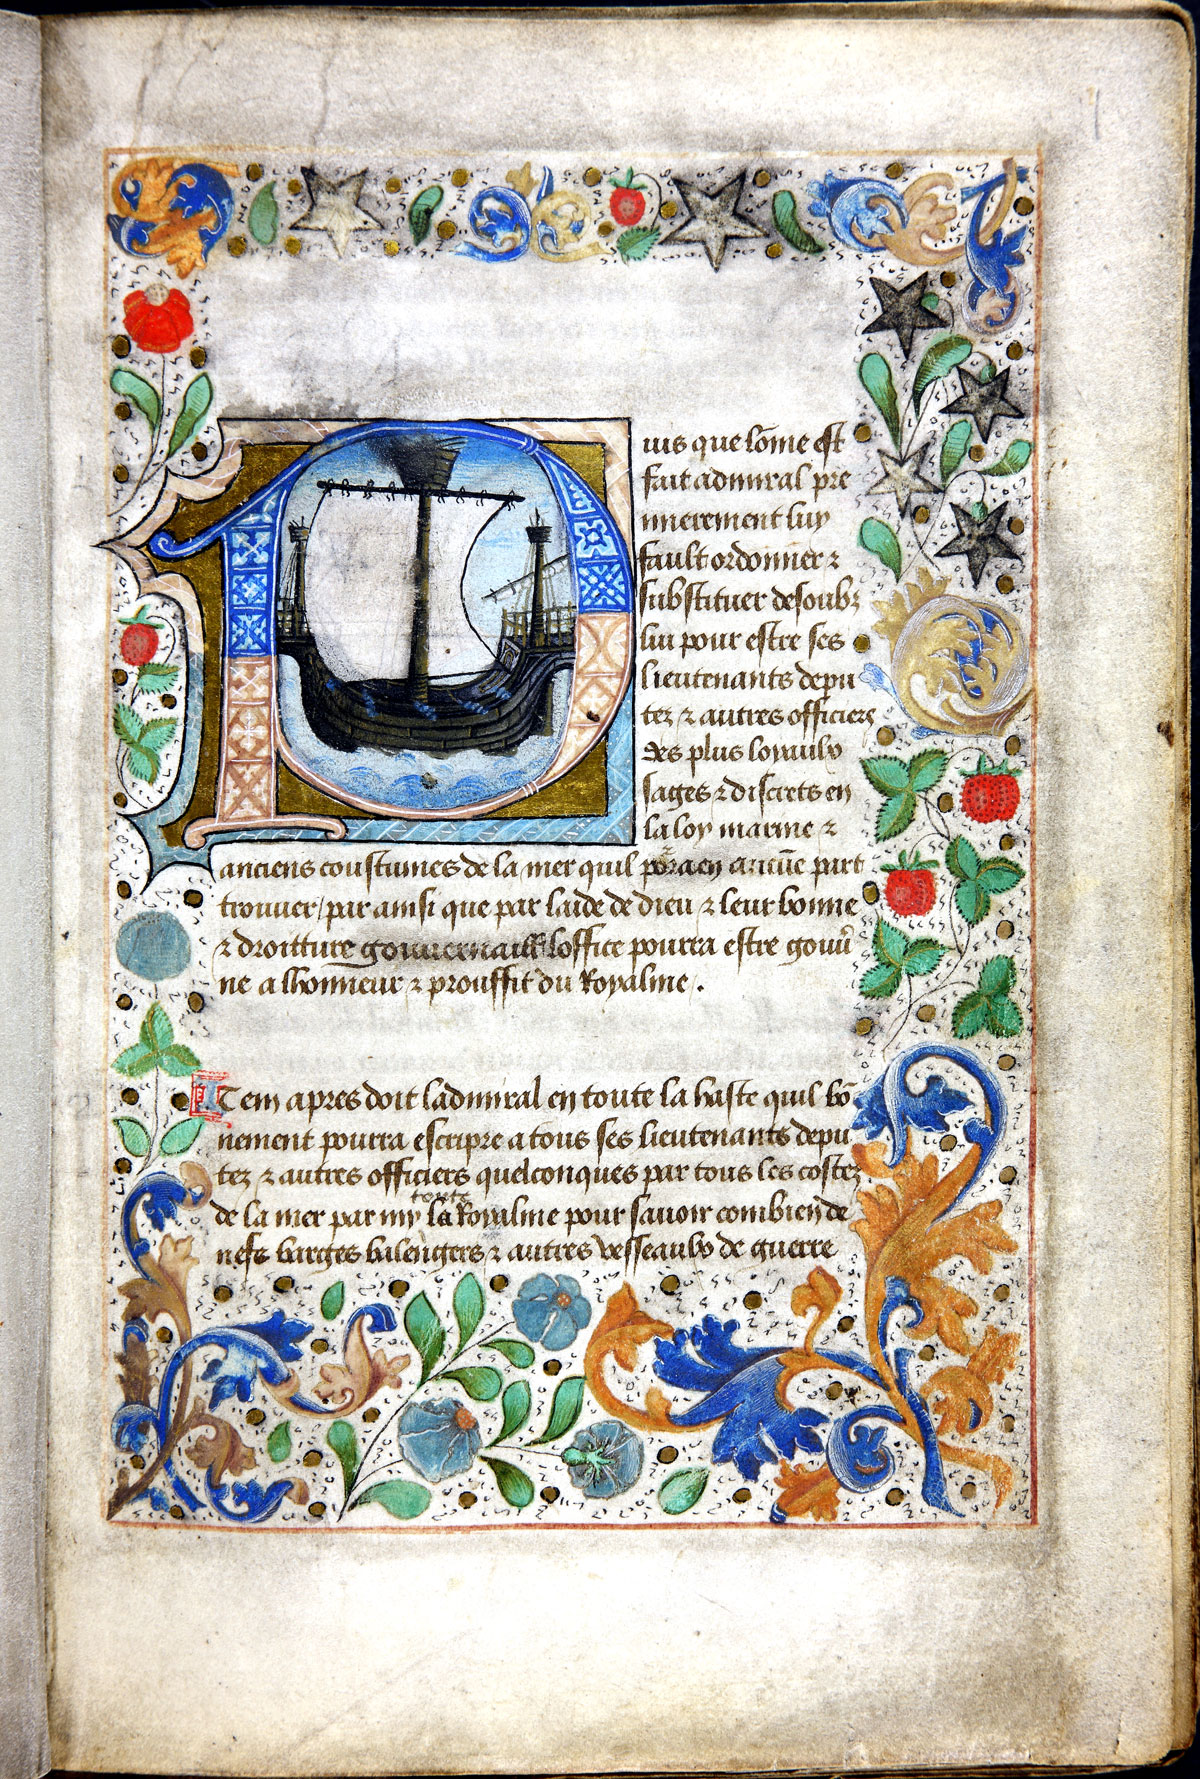 Puis que lõme est
fait admiral pre
mierement luy
fault ordonner ⁊
substituer desoubz
lui pour estre ses
lieutenants depu
tez ⁊ autres officiers
des plus loyaulx
sages ⁊ discrets en
la loy marine ⁊
anciens coustumes de la mer quil porra en aucũe part
trouver / par ainsi que par laide de dieu ⁊ leur bonne
⁊ droitture gouvernaill loffice pourra estre gouũ
ne a lhonneur ⁊ prouffit du Royalme .
ITem apres doit ladmiral en toute la haste quil bõ
nement pourra escripre a tous ses lieutenants depu
tez ⁊ autres officiers quelconques par tous les costez
toute
de la mer par my la Royalme pour savoir combien de
nefs barges balengers ⁊ autres vesseaulx de guerre